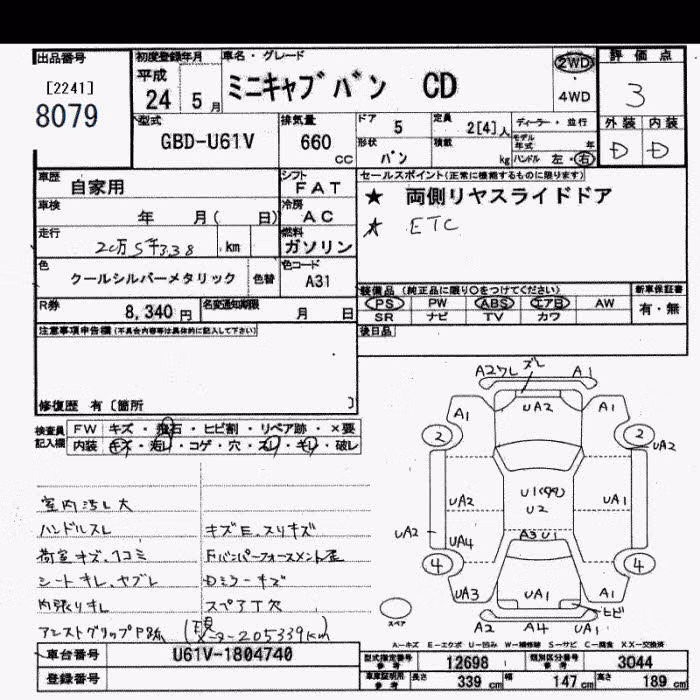 出品番号
[2241]
8079
初度登録年月
平成
24 5 月
車名・グレード
ミニキャブバン CD
2WD
4WD
評価点
3
外装 内装
D D
型式
GBD-U61V
排気量
660
CC
ドア
5
定員
2[4]人
ディーラー・並行
モデル年式 年
形状
バン
積載
kg
ハンドル 左・右
車歴
自家用
シフト
FAT
セールスポイント(正常に機能するものに限ります)
★ 両側リヤスライドドア
★ ETC
車検
年 月( 日)
冷房
AC
走行
20万5千338 km
燃料
ガソリン
色
クールシルバーメタリック
色替
色コード
A31
装備品 (純正品に限り○をつけてください)
PS PW ABS エアB AW
SR ナビ TV カワ
新車保証書
有・無
R券
8,340 円
名変通知期限
月 日
後日品
注意事項申告欄(不具合内容等は具体的に記入して下さい)
修復歴 有〔箇所 〕
検査員記入欄
FW キズ・飛石・ヒビ割・リペア跡・×要
内装 キズ・汚レ・コゲ・穴・スレ・キレ・破レ
室内汚レ大
ハンドルスレ
キズE、スリキズ
荷室キズ、凹コミ
シートキレ、ヤブレ
Dミラーキズ
内張りキレ
スペアT欠
アシストグリップP跡
205339km)
車台番号
U61V-1804740
登録番号
A2ワレ ズレ A1
A1 UA2 A1
2 2
UA2
UA2 U1(99) UA1
U2
UA2 UA4 A3 U1
4 4
UA3 UA1 A1
ヒビ
スペア
A2 A4 UA1
A-キズ E-エクボ U-凹み W-補修跡 S-サビ C-腐食 XX-交換済
型式指定番号
参考
12698
類別区分番号
参考
3044
車庫証明用
参考
長さ
339 cm
幅
147 cm
高さ
189 cm